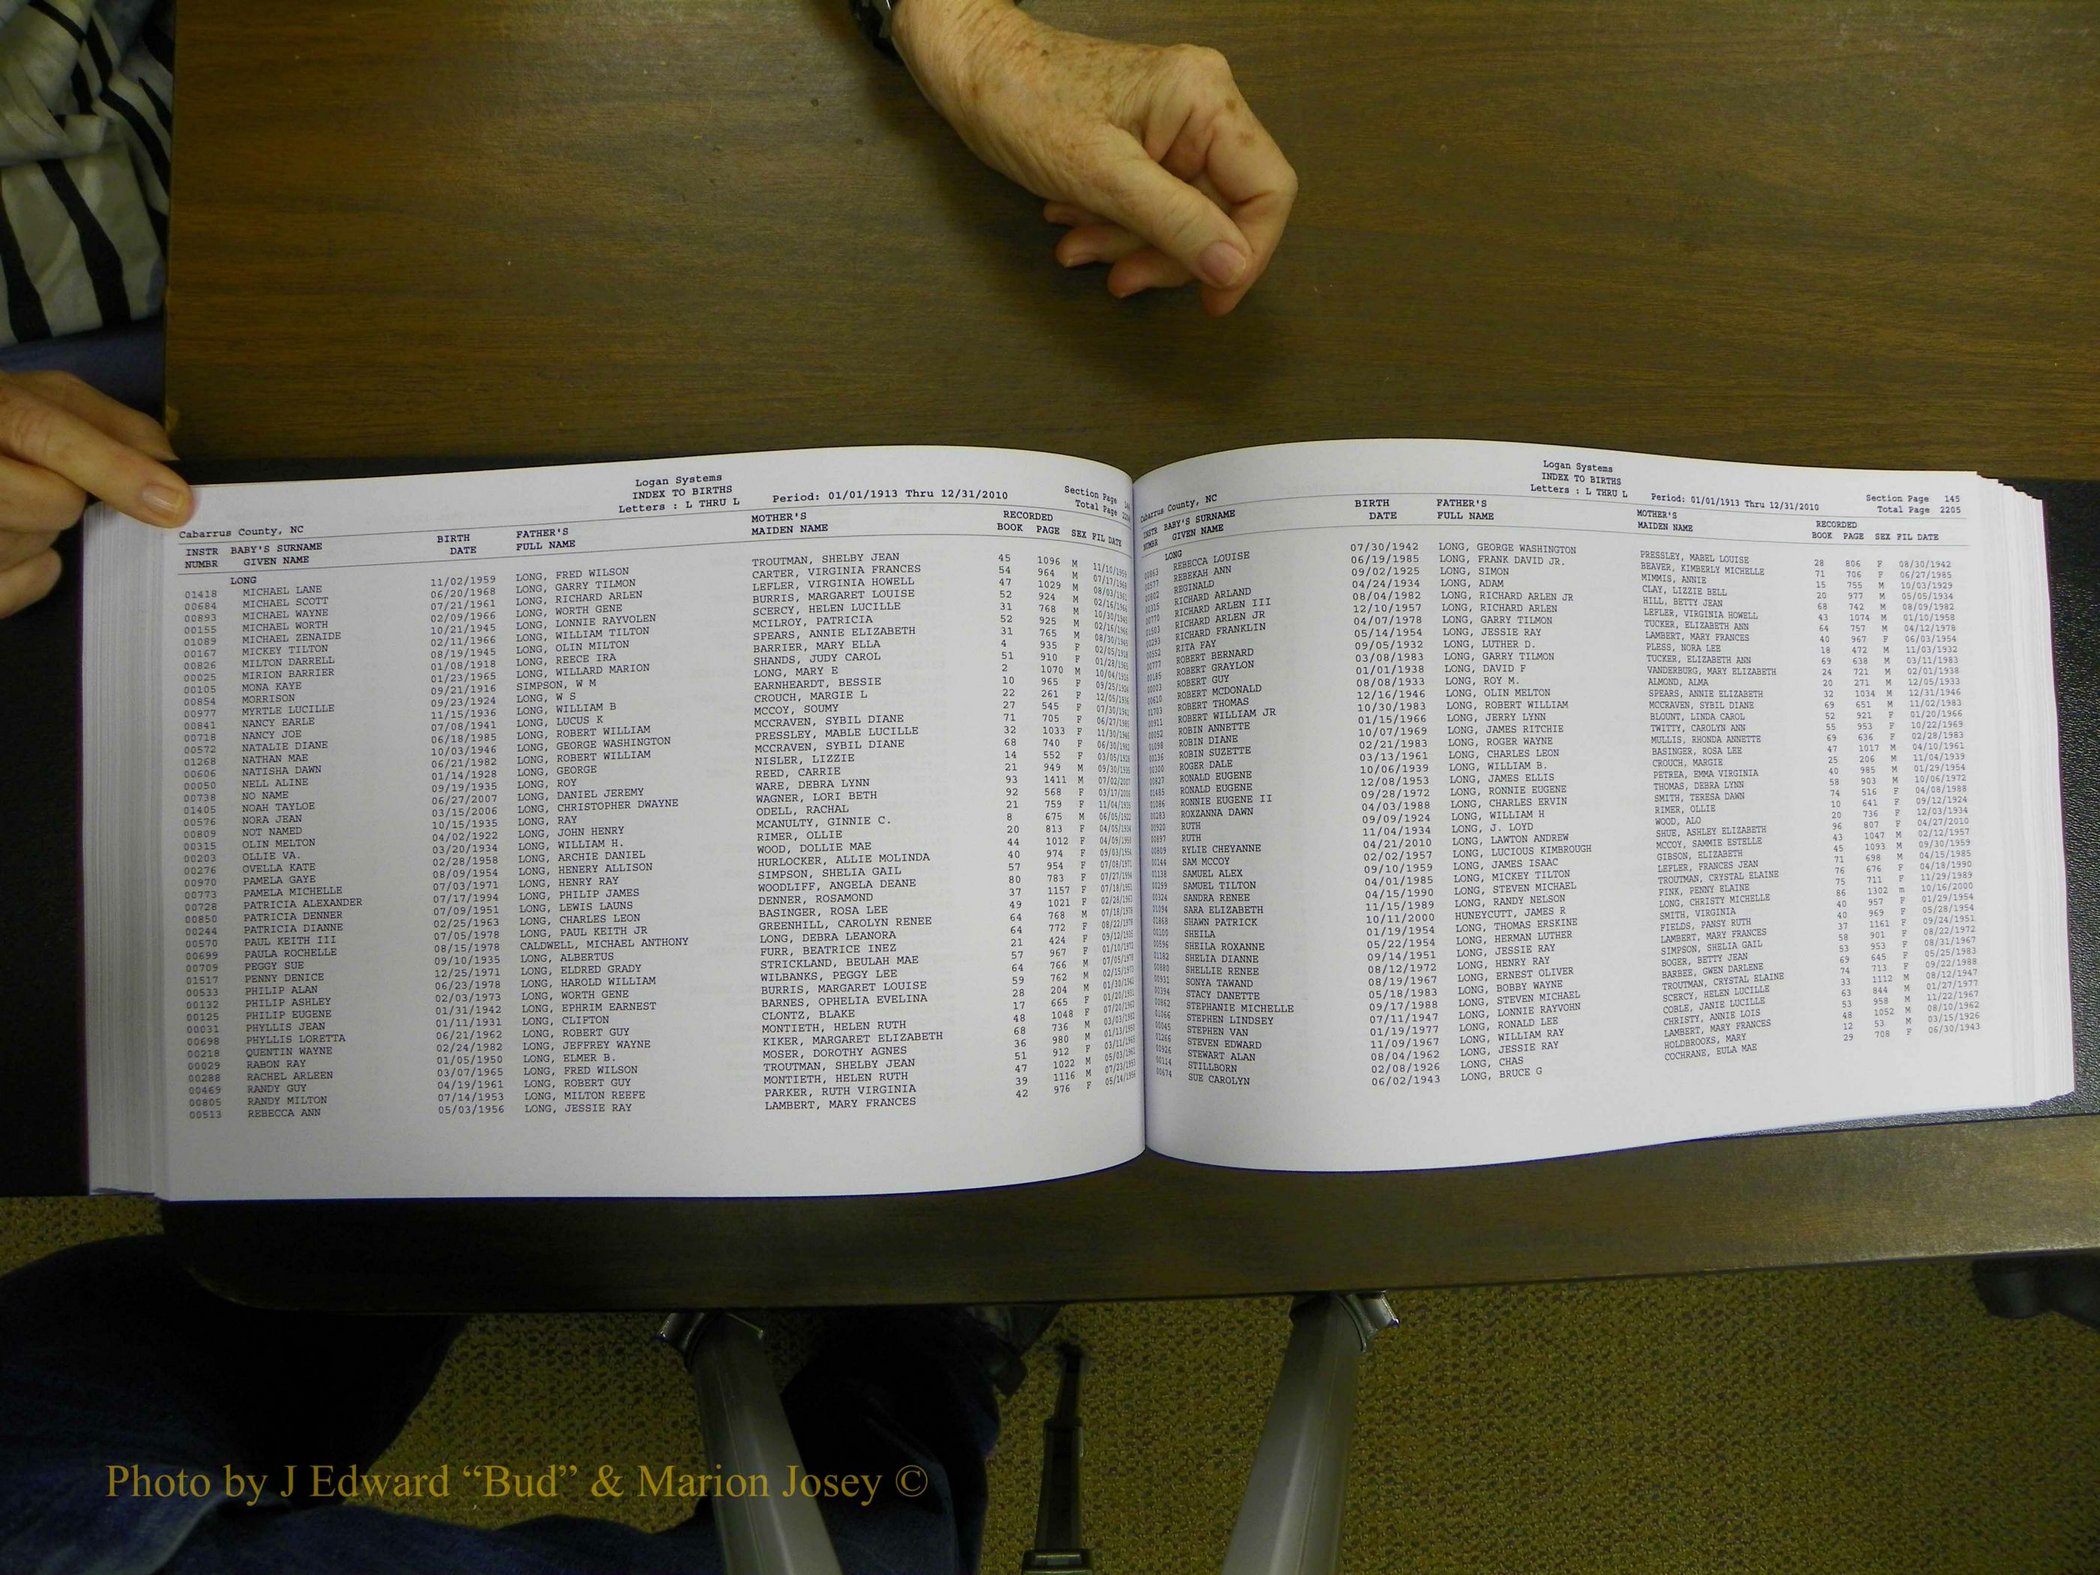 Logan Systems
INDEX TO BIRTHS
Letters : L THRU L
Cabarrus County, NC Period: 01/01/1913 Thru 12/31/2010 Section Page
Total Page
INSTR BABY'S SURNAME BIRTH FATHER'S MOTHER'S RECORDED
NUMBR GIVEN NAME DATE FULL NAME MAIDEN NAME BOOK PAGE SEX FIL DATE
LONG
01418 MICHAEL LANE 11/02/1959 LONG, FRED WILSON TROUTMAN, SHELBY JEAN 45 1096 M
00684 MICHAEL SCOTT 06/20/1968 LONG, GARRY TILMON CARTER, VIRGINIA FRANCES 54 964 M
00893 MICHAEL WAYNE 07/21/1961 LONG, RICHARD ARLEN LEFLER, VIRGINIA HOWELL 47 1029 M
00155 MICHAEL WORTH 02/09/1966 LONG, WORTH GENE BURRIS, MARGARET LOUISE 52 924 M
01089 MICHAEL ZENAIDE 10/21/1945 LONG, LONNIE RAYVOLEN SCERCY, HELEN LUCILLE 31 768 M
00167 MICKEY TILTON 02/11/1966 LONG, WILLIAM TILTON MCILROY, PATRICIA 52 925 M
00826 MILTON DARRELL 08/19/1945 LONG, OLIN MILTON SPEARS, ANNIE ELIZABETH 31 765 M
00025 MIRION BARRIER 01/08/1918 LONG, REECE IRA BARRIER, MARY ELLA 4 935 F
00105 MONA KAYE 01/23/1965 LONG, WILLARD MARION SHANDS, JUDY CAROL 51 910 F
00854 MORRISON 09/21/1916 SIMPSON, W M LONG, MARY E 2 1070 M
00977 MYRTLE LUCILLE 09/23/1924 LONG, W S EARNHEARDT, BESSIE 10 965 F
00841 NANCY EARLE 11/15/1936 LONG, WILLIAM B CROUCH, MARGIE L 22 261 F
00718 NANCY JOE 07/08/1941 LONG, LUCUS K MCCOY, SOUMY 27 545 F
00572 NATALIE DIANE 06/18/1985 LONG, ROBERT WILLIAM MCCRAVEN, SYBIL DIANE 71 705 F
01268 NATHAN MAE 10/03/1946 LONG, GEORGE WASHINGTON PRESSLEY, MABLE LUCILLE 32 1033 F
00606 NATISHA DAWN 06/21/1982 LONG, ROBERT WILLIAM MCCRAVEN, SYBIL DIANE 68 740 F
00050 NELL ALINE 01/14/1928 LONG, GEORGE NISLER, LIZZIE 14 552 F
00738 NO NAME 09/19/1935 LONG, ROY REED, CARRIE 21 949 M
01405 NOAH TAYLOE 06/27/2007 LONG, DANIEL JEREMY WARE, DEBRA LYNN 93 1411 M
00576 NORA JEAN 03/15/2006 LONG, CHRISTOPHER DWAYNE WAGNER, LORI BETH 92 568 F
00809 NOT NAMED 10/15/1935 LONG, RAY ODELL, RACHAL 21 759 F
00315 OLIN MELTON 04/02/1922 LONG, JOHN HENRY MCANULTY, GINNIE C. 8 675 M
00203 OLLIE VA. 03/20/1934 LONG, WILLIAM H. RIMER, OLLIE 20 813 F
00276 OVELLA KATE 02/28/1958 LONG, ARCHIE DANIEL WOOD, DOLLIE MAE 44 1012 F
00970 PAMELA GAYE 08/09/1954 LONG, HENERY ALLISON HURLOCKER, ALLIE MOLINDA 40 974 F
00773 PAMELA MICHELLE 07/03/1971 LONG, HENRY RAY SIMPSON, SHELIA GAIL 57 954 F
00728 PATRICIA ALEXANDER 07/17/1994 LONG, PHILIP JAMES WOODLIFF, ANGELA DEANE 80 783 F
00850 PATRICIA DENNER 07/09/1951 LONG, LEWIS LAUNS DENNER, ROSAMOND 37 1157 F
00244 PATRICIA DIANNE 02/25/1963 LONG, CHARLES LEON BASINGER, ROSA LEE 49 1021 F
00570 PAUL KEITH III 07/05/1978 LONG, PAUL KEITH JR GREENHILL, CAROLYN RENEE 64 768 M
00699 PAULA ROCHELLE 08/15/1978 CALDWELL, MICHAEL ANTHONY LONG, DEBRA LEANORA 64 772 F
00709 PEGGY SUE 09/10/1935 LONG, ALBERTUS FURR, BEATRICE INEZ 21 424 F
01517 PENNY DENICE 12/25/1971 LONG, ELDRED GRADY STRICKLAND, BEULAH MAE 57 967 F
00533 PHILIP ALAN 06/23/1978 LONG, HAROLD WILLIAM WILBANKS, PEGGY LEE 64 766 M
00132 PHILIP ASHLEY 02/03/1973 LONG, WORTH GENE BURRIS, MARGARET LOUISE 59 762 M
00125 PHILIP EUGENE 01/31/1942 LONG, EPHRIM EARNEST BARNES, OPHELIA EVELINA 28 204 M
00031 PHYLLIS JEAN 01/11/1931 LONG, CLIFTON CLONTZ, BLAKE 17 665 F
00698 PHYLLIS LORETTA 06/21/1962 LONG, ROBERT GUY MONTIETH, HELEN RUTH 48 1048 F
00218 QUENTIN WAYNE 02/24/1982 LONG, JEFFREY WAYNE KIKER, MARGARET ELIZABETH 68 736 M
00029 RABON RAY 01/05/1950 LONG, ELMER B. MOSER, DOROTHY AGNES 36 980 M
00288 RACHEL ARLEEN 03/07/1965 LONG, FRED WILSON TROUTMAN, SHELBY JEAN 51 912 F
00469 RANDY GUY 04/19/1961 LONG, ROBERT GUY MONTIETH, HELEN RUTH 47 1022 M
00805 RANDY MILTON 07/14/1953 LONG, MILTON REEFE PARKER, RUTH VIRGINIA 39 1116 M
00513 REBECCA ANN 05/03/1956 LONG, JESSIE RAY LAMBERT, MARY FRANCES 42 976 F
Logan Systems
INDEX TO BIRTHS
Letters : L THRU L
Cabarrus County, NC Period: 01/01/1913 Thru 12/31/2010 Section Page 145
Total Page 2205
INSTR BABY'S SURNAME BIRTH FATHER'S MOTHER'S RECORDED
NUMBR GIVEN NAME DATE FULL NAME MAIDEN NAME BOOK PAGE SEX FIL DATE
LONG
REBECCA LOUISE 07/30/1942 LONG, GEORGE WASHINGTON PRESSLEY, MABEL LOUISE 28 806 F 08/30/1942
00577 REBEKAH ANN 06/19/1985 LONG, FRANK DAVID JR. BEAVER, KIMBERLY MICHELLE 71 706 F 06/27/1985
00802 REGINALD 09/02/1925 LONG, SIMON MIMMIS, ANNIE 15 755 M 10/03/1929
00315 RICHARD ARLAND 04/24/1934 LONG, ADAM CLAY, LIZZIE BELL 20 977 M 05/05/1934
00770 RICHARD ARLEN III 08/04/1982 LONG, RICHARD ARLEN JR HILL, BETTY JEAN 68 742 M 08/09/1982
01503 RICHARD ARLEN JR 12/10/1957 LONG, RICHARD ARLEN LEFLER, VIRGINIA HOWELL 43 1074 M 01/10/1958
00293 RICHARD FRANKLIN 04/07/1978 LONG, GARRY TILMON TUCKER, ELIZABETH ANN 64 757 M 04/12/1978
00552 RITA FAY 05/14/1954 LONG, JESSIE RAY LAMBERT, MARY FRANCES 40 967 F 06/03/1954
00777 ROBERT BERNARD 09/05/1932 LONG, LUTHER D. PLESS, NORA LEE 18 472 M 11/03/1932
00185 ROBERT GRAYLON 03/08/1983 LONG, GARRY TILMON TUCKER, ELIZABETH ANN 69 638 M 03/11/1983
00003 ROBERT GUY 01/01/1938 LONG, DAVID F VANDERBURG, MARY ELIZABETH 24 721 M 02/01/1938
00610 ROBERT MCDONALD 08/08/1933 LONG, ROY M. ALMOND, ALMA 20 271 M 12/05/1933
01703 ROBERT THOMAS 12/16/1946 LONG, OLIN MELTON SPEARS, ANNIE ELIZABETH 32 1034 M 12/31/1946
00911 ROBERT WILLIAM JR 10/30/1983 LONG, ROBERT WILLIAM MCCRAVEN, SYBIL DIANE 69 651 M 11/02/1983
00052 ROBIN ANNETTE 01/15/1966 LONG, JERRY LYNN BLOUNT, LINDA CAROL 52 921 F 01/20/1966
01098 ROBIN DIANE 10/07/1969 LONG, JAMES RITCHIE TWITTY, CAROLYN ANN 55 953 F 10/22/1969
00136 ROBIN SUZETTE 02/21/1983 LONG, ROGER WAYNE MULLIS, RHONDA ANNETTE 69 636 F 02/28/1983
00300 ROGER DALE 03/13/1961 LONG, CHARLES LEON BASINGER, ROSA LEE 47 1017 M 04/10/1961
00827 RONALD EUGENE 10/06/1939 LONG, WILLIAM B. CROUCH, MARGIE 25 206 M 11/04/1939
01485 RONALD EUGENE 12/08/1953 LONG, JAMES ELLIS PETREA, EMMA VIRGINIA 40 985 M 01/29/1954
01086 RONNIE EUGENE II 09/28/1972 LONG, RONNIE EUGENE THOMAS, DEBRA LYNN 58 903 M 10/06/1972
00283 ROXZANNA DAWN 04/03/1988 LONG, CHARLES ERVIN SMITH, TERESA DAWN 74 516 F 04/08/1988
00920 RUTH 09/09/1924 LONG, WILLIAM H RIMER, OLLIE 10 641 F 09/12/1924
00897 RUTH 11/04/1934 LONG, J. LOYD WOOD, ALO 20 736 F 12/03/1934
00809 RYLIE CHEYANNE 04/21/2010 LONG, LAWTON ANDREW SHUE, ASHLEY ELIZABETH 96 807 F 04/27/2010
00144 SAM MCCOY 02/02/1957 LONG, LUCIOUS KIMBROUGH MCCOY, SAMMIE ESTELLE 43 1047 M 02/12/1957
01138 SAMUEL ALEX 09/10/1959 LONG, JAMES ISAAC GIBSON, ELIZABETH 45 1093 M 09/30/1959
00299 SAMUEL TILTON 04/01/1985 LONG, MICKEY TILTON LEFLER, FRANCES JEAN 71 698 M 04/15/1985
00324 SANDRA RENEE 04/15/1990 LONG, STEVEN MICHAEL TROUTMAN, CRYSTAL ELAINE 76 676 F 04/18/1990
01094 SARA ELIZABETH 11/15/1989 LONG, RANDY NELSON FINK, PENNY ELAINE 75 711 F 11/29/1989
01868 SHAWN PATRICK 10/11/2000 HUNEYCUTT, JAMES R LONG, CHRISTY MICHELLE 86 1302 m 10/16/2000
00100 SHEILA 01/19/1954 LONG, THOMAS ERSKINE SMITH, VIRGINIA 40 957 F 01/29/1954
00596 SHEILA ROXANNE 05/22/1954 LONG, HERMAN LUTHER FIELDS, PANSY RUTH 40 969 F 05/28/1954
01182 SHELIA DIANNE 09/14/1951 LONG, JESSIE RAY LAMBERT, MARY FRANCES 37 1161 F 09/24/1951
00880 SHELLIE RENEE 08/12/1972 LONG, HENRY RAY SIMPSON, SHELIA GAIL 58 901 F 08/22/1972
00931 SONYA TAWAND 08/19/1967 LONG, ERNEST OLIVER BOGER, BETTY JEAN 53 953 F 08/31/1967
00394 STACY DANETTE 05/18/1983 LONG, BOBBY WAYNE BARBEE, GWEN DARLENE 69 645 F 05/25/1983
00862 STEPHANIE MICHELLE 09/17/1988 LONG, STEVEN MICHAEL TROUTMAN, CRYSTAL ELAINE 74 713 F 09/22/1988
01066 STEPHEN LINDSEY 07/11/1947 LONG, LONNIE RAYVOHN SCERCY, HELEN LUCILLE 33 1112 M 08/12/1947
00045 STEPHEN VAN 01/19/1977 LONG, RONALD LEE COBLE, JANIE LUCILLE 63 844 M 01/27/1977
01266 STEVEN EDWARD 11/09/1967 LONG, WILLIAM RAY CHRISTY, ANNIE LOIS 53 958 M 11/22/1967
00926 STEWART ALAN 08/04/1962 LONG, JESSIE RAY LAMBERT, MARY FRANCES 48 1052 M 08/10/1962
00114 STILLBORN 02/08/1926 LONG, CHAS HOLDBROOKS, MARY 12 53 M 03/15/1926
00674 SUE CAROLYN 06/02/1943 LONG, BRUCE G COCHRANE, EULA MAE 29 708 F 06/30/1943
Photo by J Edward “Bud” & Marion Josey ©